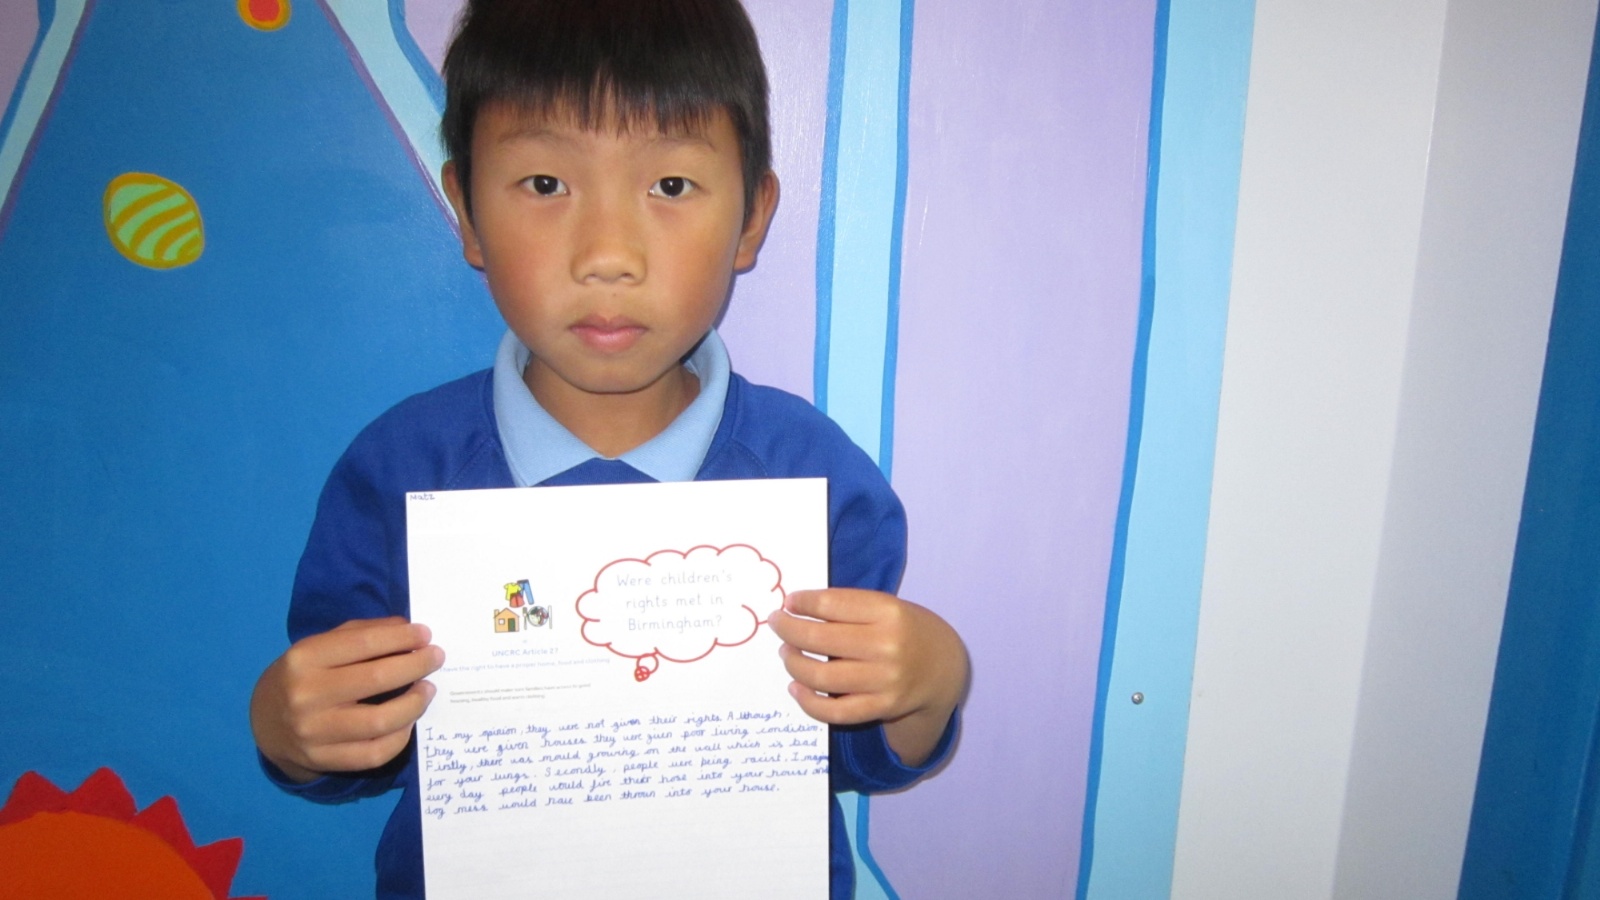 Were children's
rights met in
Birmingham?
UNCRC Article 27
I have the right to have a proper home, food and clothing
housing, healthy food and warm clothing
In my opinion, they were not given their rights. Although,
they were given houses they were given poor living condition.
Firstly, there was mould growing on the wall which is bad
for your lungs. Secondly, people were being racist, I
every day people would fire their hose into your house and
dog mess would have been thrown into your house.